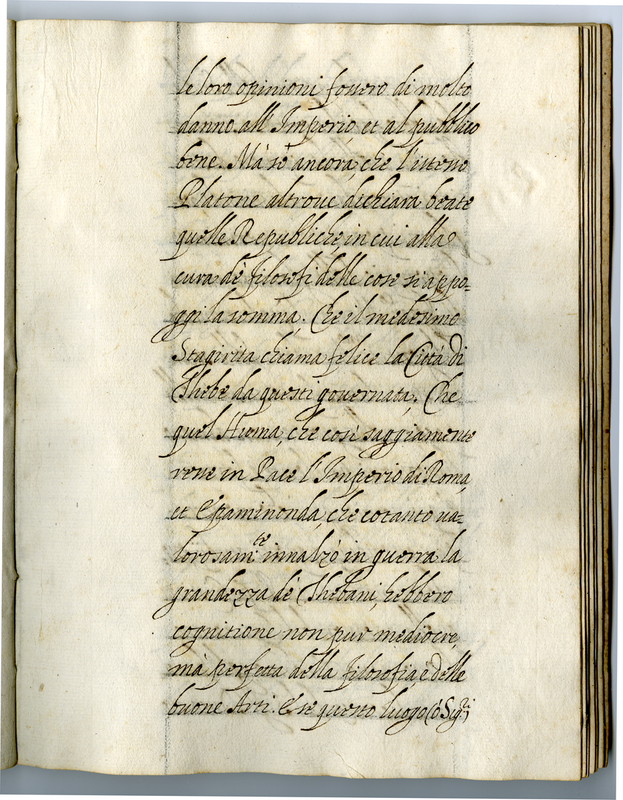 le loro opinioni fossero di molto
danno all'Imperio, et al pubblico
bene. Mà sè ancora, che l'istesso
Platone altroue dichiara beate
quelle Republiche, in cui alla
cura dè filosofi delle cose si appo-
ggi la somma. Che il medesimo
Stagirita chiama felice la Città di
Thebe da questi gouernata. Che
quel Numa, che così saggiamente
resse in Pace l'Imperio di Roma,
et Epaminonda, che cotanto ua-
lorosam.te innalzò in guerra la
grandezza dè Thebani, hebbero
cognitione non pur mediocre,
mà perfetta della filosofia, e delle
buone Arti. E se questo luogo (ò Sig.ri)